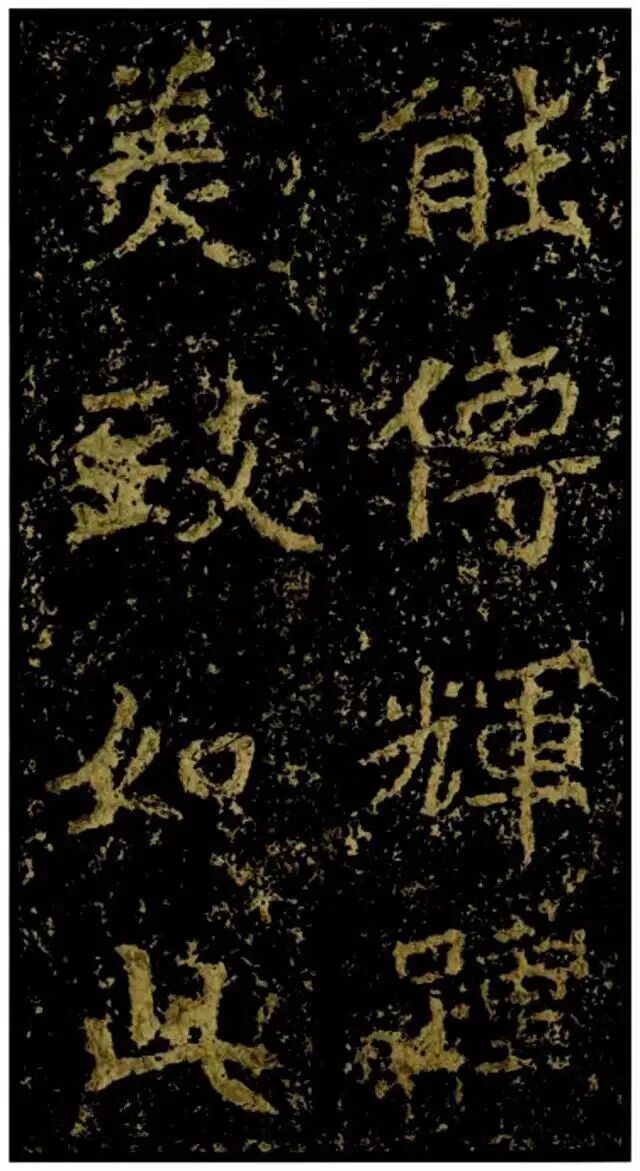 能傳輝踵
美致如此